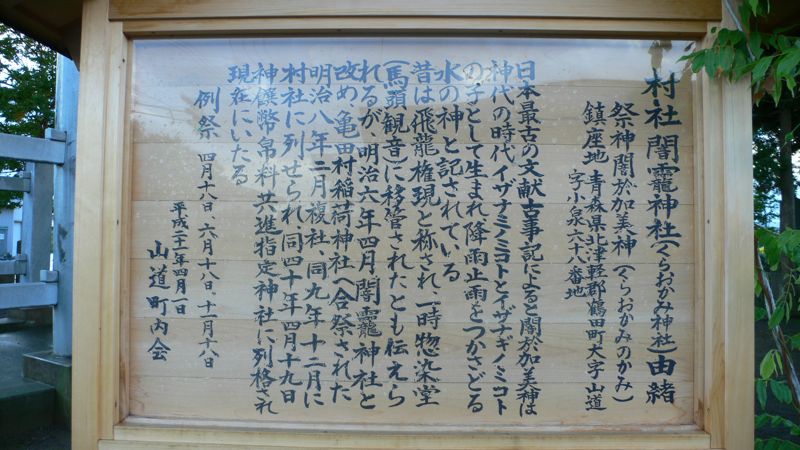 村社闇龗神社(くらおかみ神社)由緒
祭神闇於加美神(くらおかみのかみ)
鎮座地青森県北津軽郡鶴田町大字山道
字小泉六十八番地
日本最古の文献古事記によると闇於加美神は
神代の時代イザナミノミコトとイザナギノミコト
の子として生まれ降雨止雨をつかさどる
水の神と記されている
昔は飛龍権現と称され、一時惣染堂
(馬頭観音)に移管されたとも伝えら
れるが、明治六年四月闇龗神社と
改め亀田村稲荷神社へ合祭された
明治八年二月複社、同九年十二月に
村社に列せられ、同四十年四月十九日
神饌幣帛料共進指定神社に列格され
現在にいたる
例祭 四月十八日、六月十八日、十一月十八日
平成二十一年四月一日
山道町内会